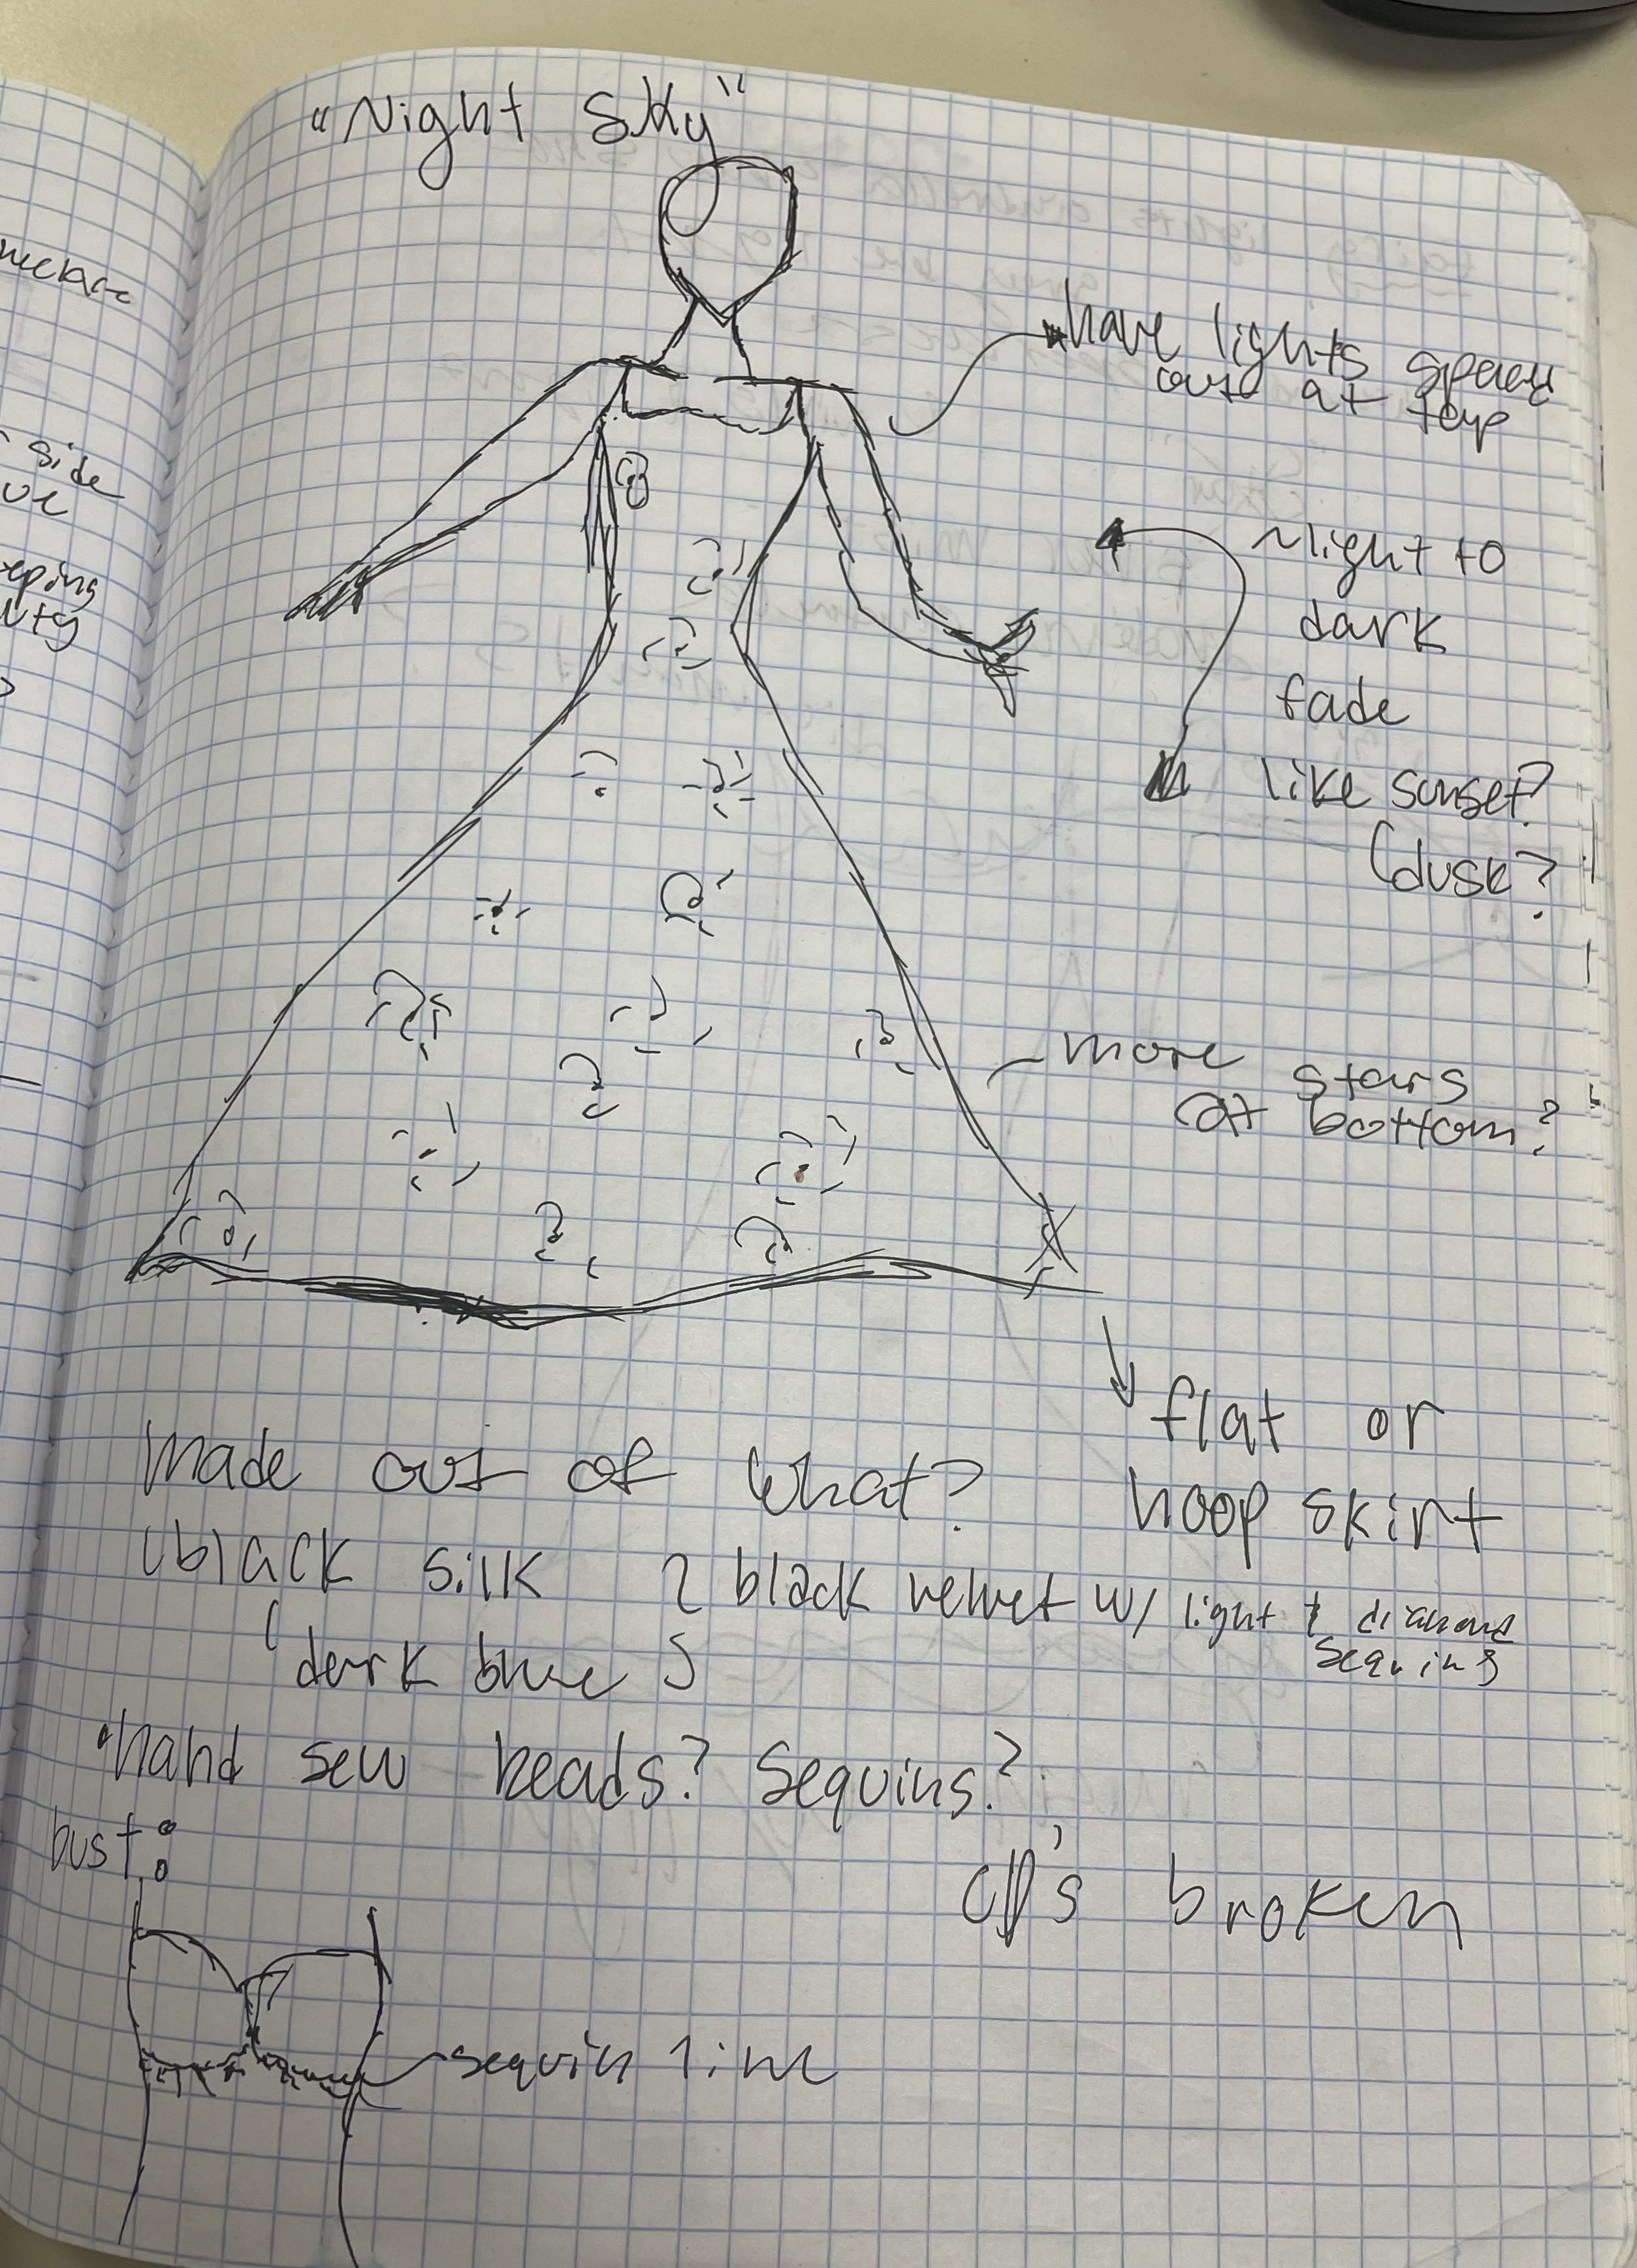 "Night Sky"
have lights spaced
out at top
~light to
dark
fade
like sunset?
(dusk?
more
stars
at bottom?
flat or
hoop skirt
made out of what?
black silk
black velvet w/ light & diamond
sequins
dark blue
hand sew beads? Sequins?
CD's broken
bust:
sequin line
side